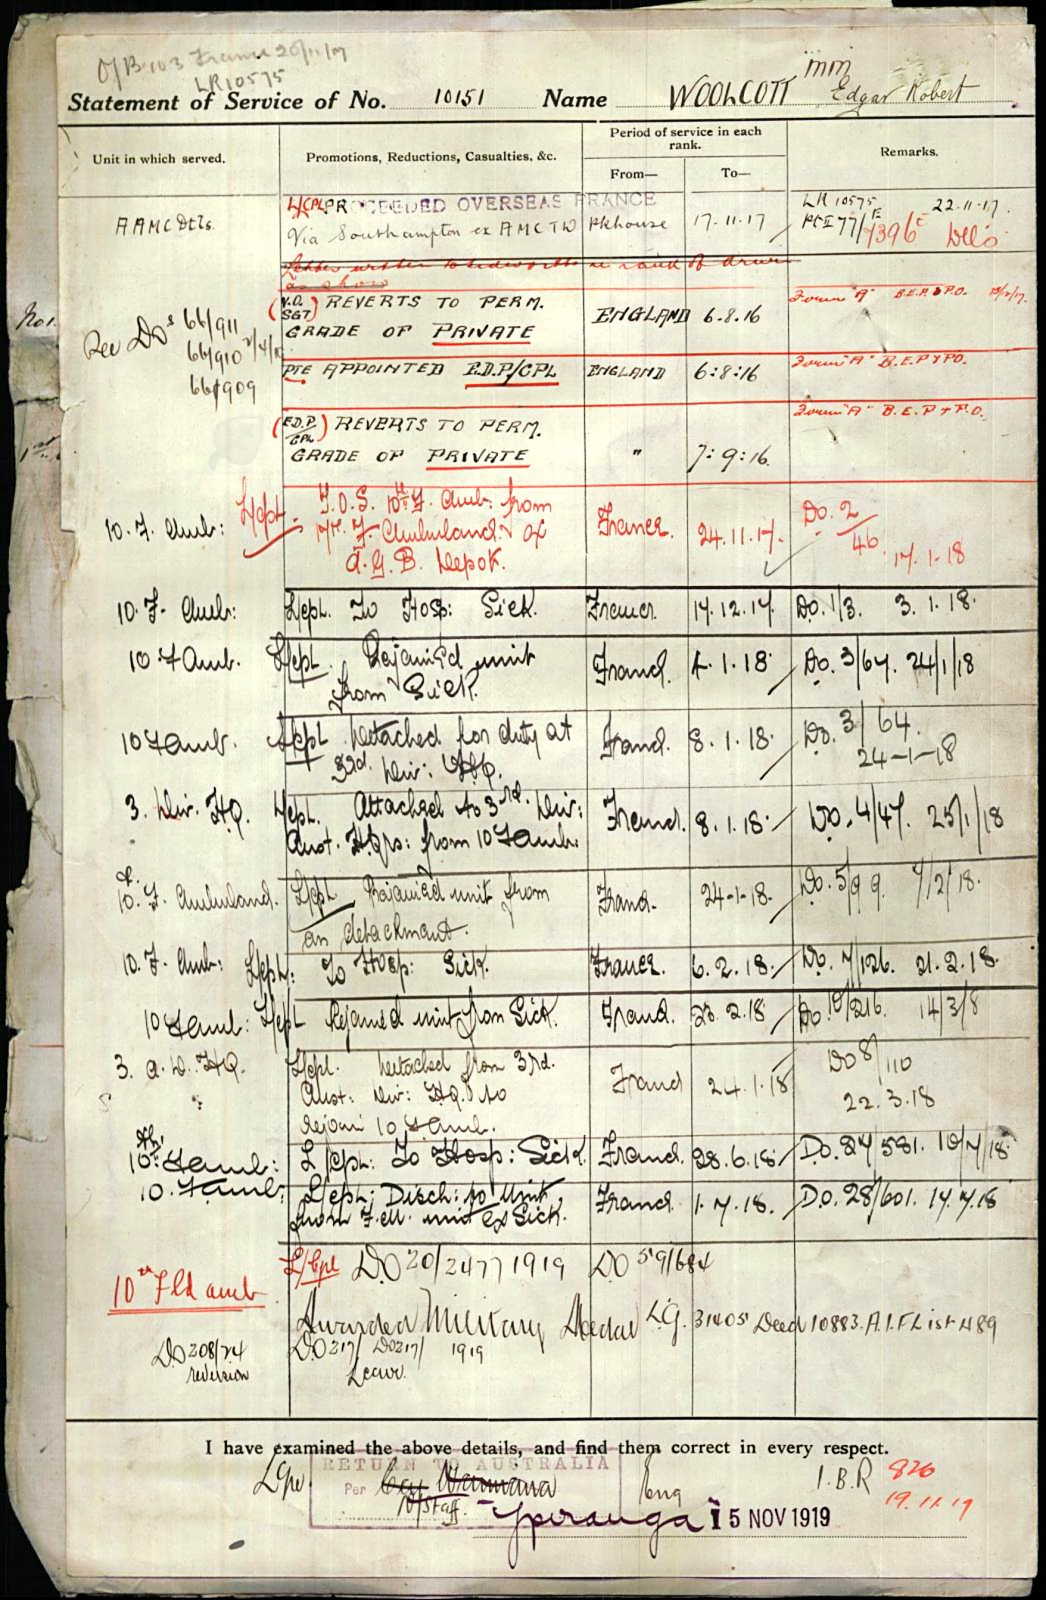 O/B 103 France 20/11/17
LR10575
MM
Statement of Service of No. 10151 Name WOOLCOTT Edgar Robert
Unit in which served.
Promotions, Reductions, Casualties, &c.
Period of service in each rank.
From—
To—
Remarks.
AAMC Dtls
L/CPL PROCEEDED OVERSEAS FRANCE
Via Southampton ex AMCTD Pkhouse 17.11.17
LR 10575 22.11.17.
as show
Rec DOs 66/911
66/910
66/909
(V.O. SGT) REVERTS TO PERM.
GRADE OF PRIVATE
ENGLAND 6.8.16
Form "A" B.E.P & P.O.
PTE APPOINTED E.D.P/CPL ENGLAND 6:8:16 Form "A" B.E.P & P.O.
(E.D.P. CPL) REVERTS TO PERM.
GRADE OF PRIVATE
" 7:9:16
Form "A" B.E.P + P.O.
10. F. Amb: L/cpl. T.O.S. 10th F. Amb: from
A.G.B. Depot.
France. 24.11.17. Do. 2/46 17.1.18
10. F. Amb: L/cpl. To Hosp: Sick. France 17.12.17 Do. 1/3. 3.1.18.
10 F Amb. L/cpl. Rejoined unit
from Sick.
France. 4.1.18 Do. 3/67. 24/1/18
10 F Amb. L/cpl Detached for duty at
3rd Div: HQ.
France. 8.1.18. Do. 3/64.
24-1-18
3. Div. HQ. L/cpl. Attached to 3rd. Div:
Aust. HQrs: from 10 F Amb:
France. 8.1.18. Do. 4/47. 25/1/18
10. F. Ambuland. L/cpl Rejoined unit from
an detachment.
France. 24-1-18. Do. 5/99. 7/2/18.
10. F. Amb: L/cpl: To Hosp: Sick. France. 6.2.18. Do. 7/126. 21.2.18.
10 F Amb: L/cpl Rejoined unit from Sick. France. 23.2.18 Do 10/216. 14/3/8
3. A. D. HQ. L/cpl. Detached from 3rd.
Aust: Div: HQ. to
rejoin 10 F. Amb.
France 24.1.18 Do 8/110
22.3.18
10th F Amb: L/cpl: To Hosp: Sick. France. 28.6.18. Do. 27/581. 10/7/18
10. F Amb: L/cpl: Disch: to Unit
from F.A. unit ex Sick.
France. 1.7.18. Do. 28/601. 17.7.18
L/Cpl DO 20/2477 1919 DO 59/684
10th Fld amb
Awarded Military Medal L.G. 31405 Deed 10883. A.I.F List 489
DO 217/ DO217/ 1919
Leave.
DO 208/24
reversion
I have examined the above details, and find them correct in every respect.
RETURN TO AUSTRALIA
L/Cpl Per
N/Staff.
Eng
I.B.R 826
19.11.19
Yperanga 15 NOV 1919
No1
1st